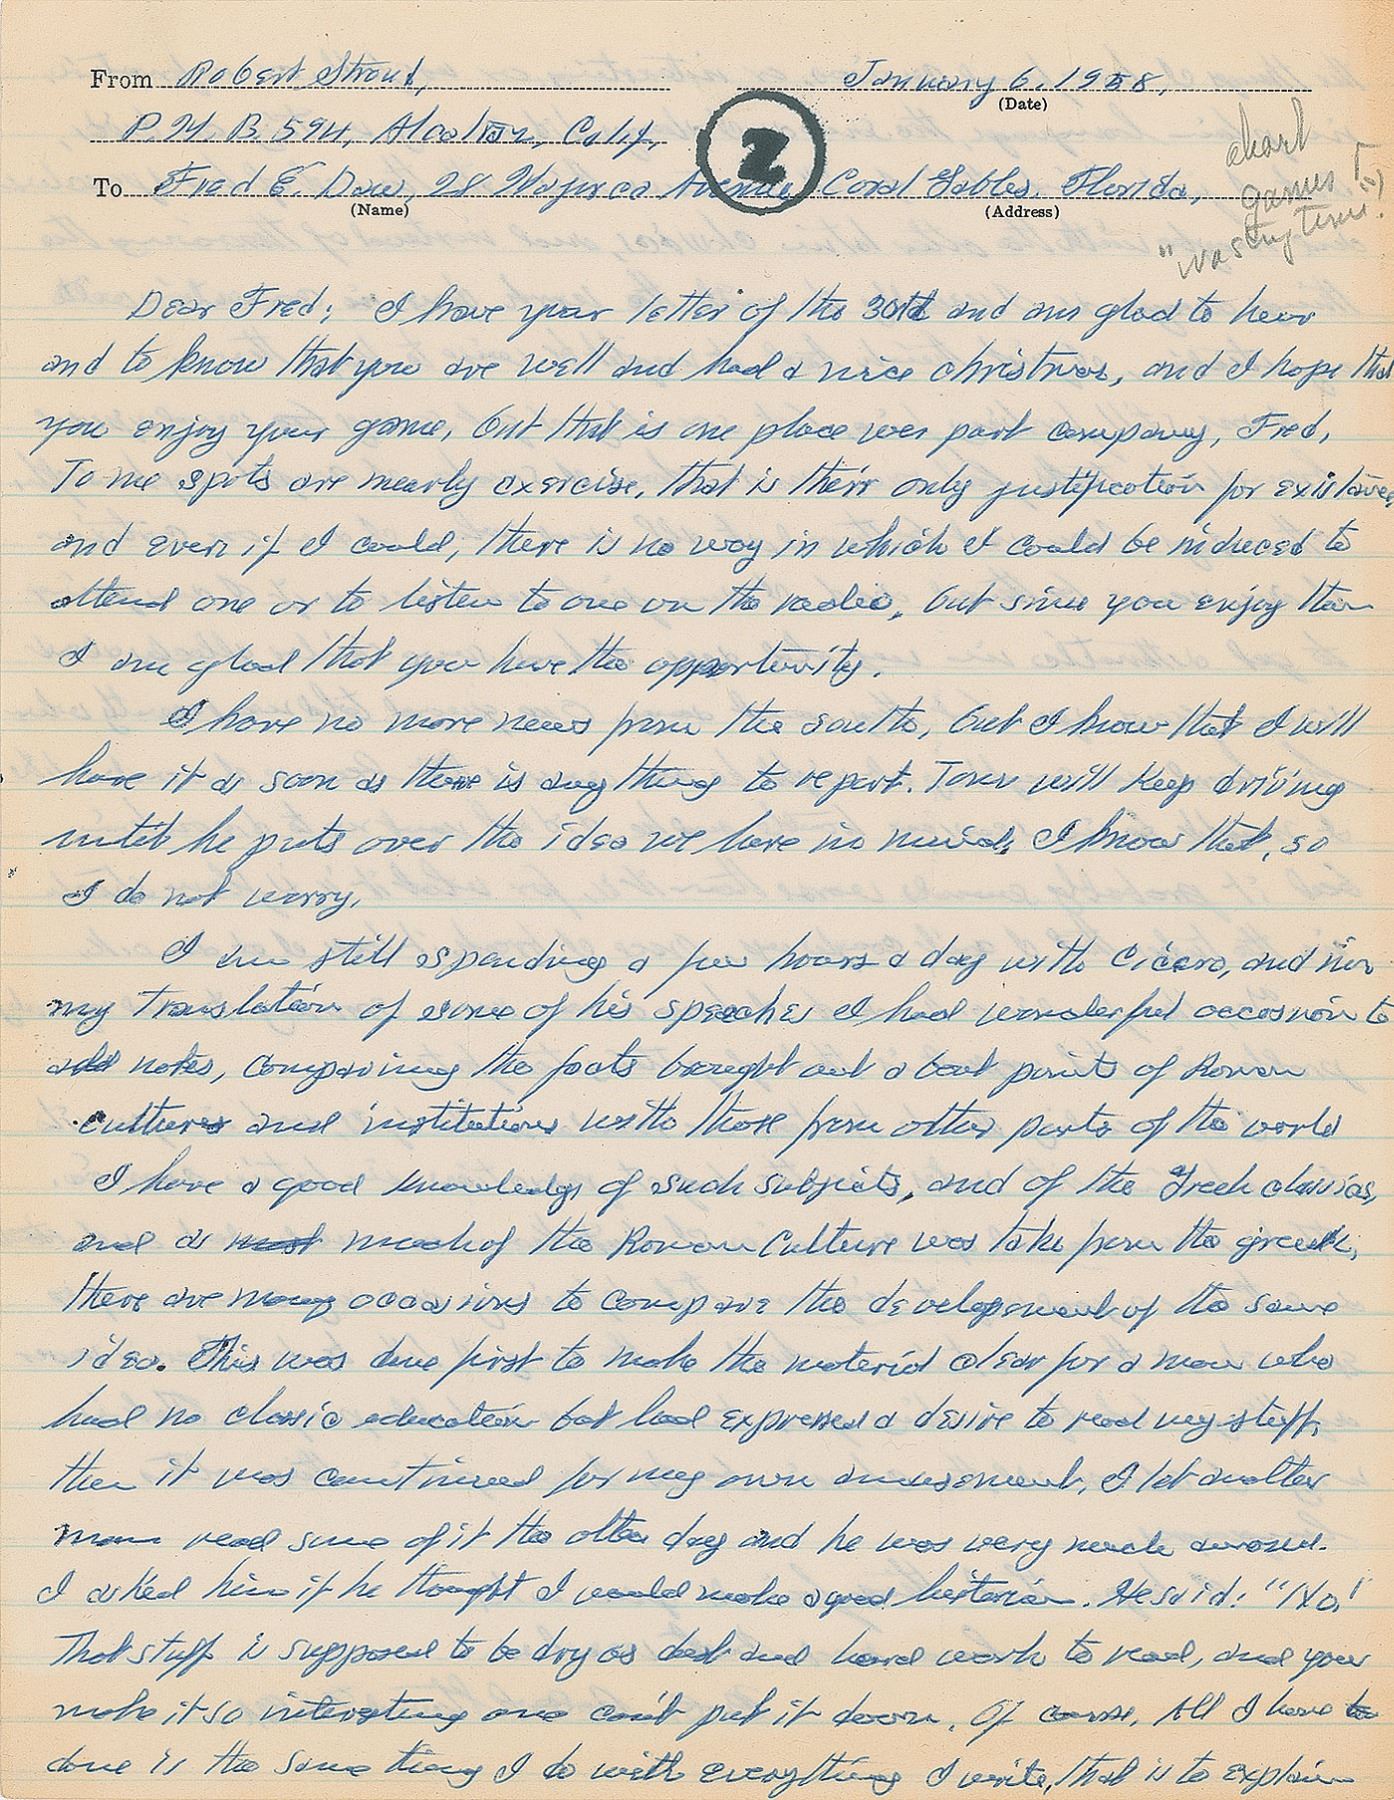 From Robert Stroud, January 6, 1958,
(Date)
P.M.B. 594, Alcatraz, Calif,
2
To Fred E. Daw, 28 Majorca Avenue Coral Gables. Florida,
(Name) (Address)
games
"wasting time"
Dear Fred: I have your letter of the 30th and am glad to hear
and to know that you are well and had a nice christmas, and I hope that
you enjoy your game, but that is one place wer part company, Fred,
To me spots are nearly exercise, that is their only justification for existance,
and even if I could, there is no way in which I could be induced to
attend one or to listen to one on the radio, but since you enjoy them
I am glad that you have the opportunity.
I have no more news from the south, but I know that I will
have it as soon as there is any thing to report. Tom will keep driving
until he puts over the idea we have in mind, I know that, so
I do not worry.
I am still spending a few hours a day with Cicero, and in
my translation of some of his speeches I had wonderful occasion to
add notes, comparing the facts brought out about points of Roman
cultures and institutions with those from other parts of the world
I have a good knowledge of such subjects, and of the Greek classics,
and as most much of the Roman Culture was take from the greek,
there are many occasions to compare the development of the same
idea. This was done first to make the material clear for a man who
had no classic education but had expressed a desire to read my stuff,
then it was continued for my own amusement, I let another
man read some of it the other day and he was very much amused.
I asked him if he thought I would make a good historian. He said: "No!
That stuff is supposed to be dry as dust and hard work to read, and your
make it so interesting one can't put it down. Of course, All I have to
done is the same thing I do with everything I write, that is to explain